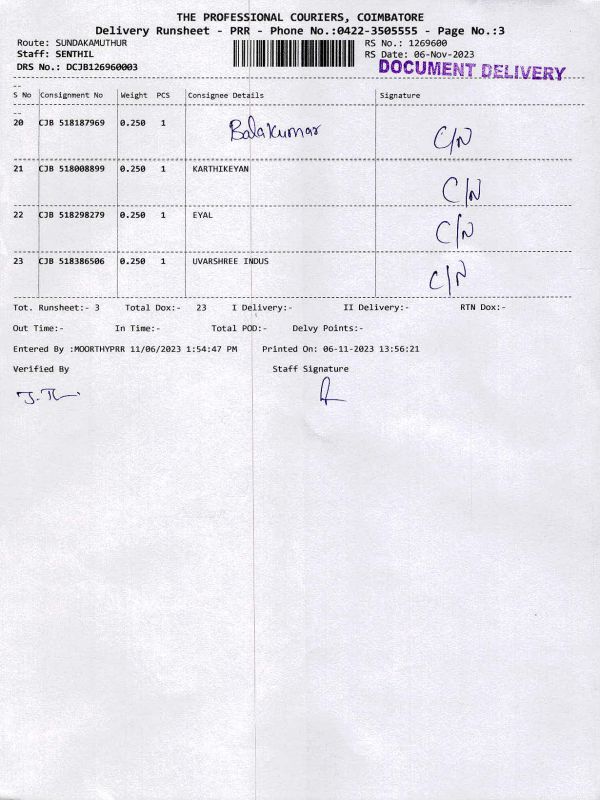 THE PROFESSIONAL COURIERS, COIMBATORE
Delivery Runsheet - PRR - Phone No.:0422-3505555 - Page No.:3
Route: SUNDAKAMUTHUR RS No.: 1269600
Staff: SENTHIL RS Date: 06-Nov-2023
DRS No.: DCJB126960003 DOCUMENT DELIVERY
--
S No Consignment No Weight PCS Consignee Details Signature
--
20 CJB 518187969 0.250 1 Balakumar C/N
21 CJB 518008899 0.250 1 KARTHIKEYAN C/N
22 CJB 518298279 0.250 1 EYAL C/N
23 CJB 518386506 0.250 1 UVARSHREE INDUS C/N
Tot. Runsheet:- 3 Total Dox:- 23 I Delivery:- II Delivery:- RTN Dox:-
Out Time:- In Time:- Total POD:- Delvy Points:-
Entered By :MOORTHYPRR 11/06/2023 1:54:47 PM Printed On: 06-11-2023 13:56:21
Verified By Staff Signature